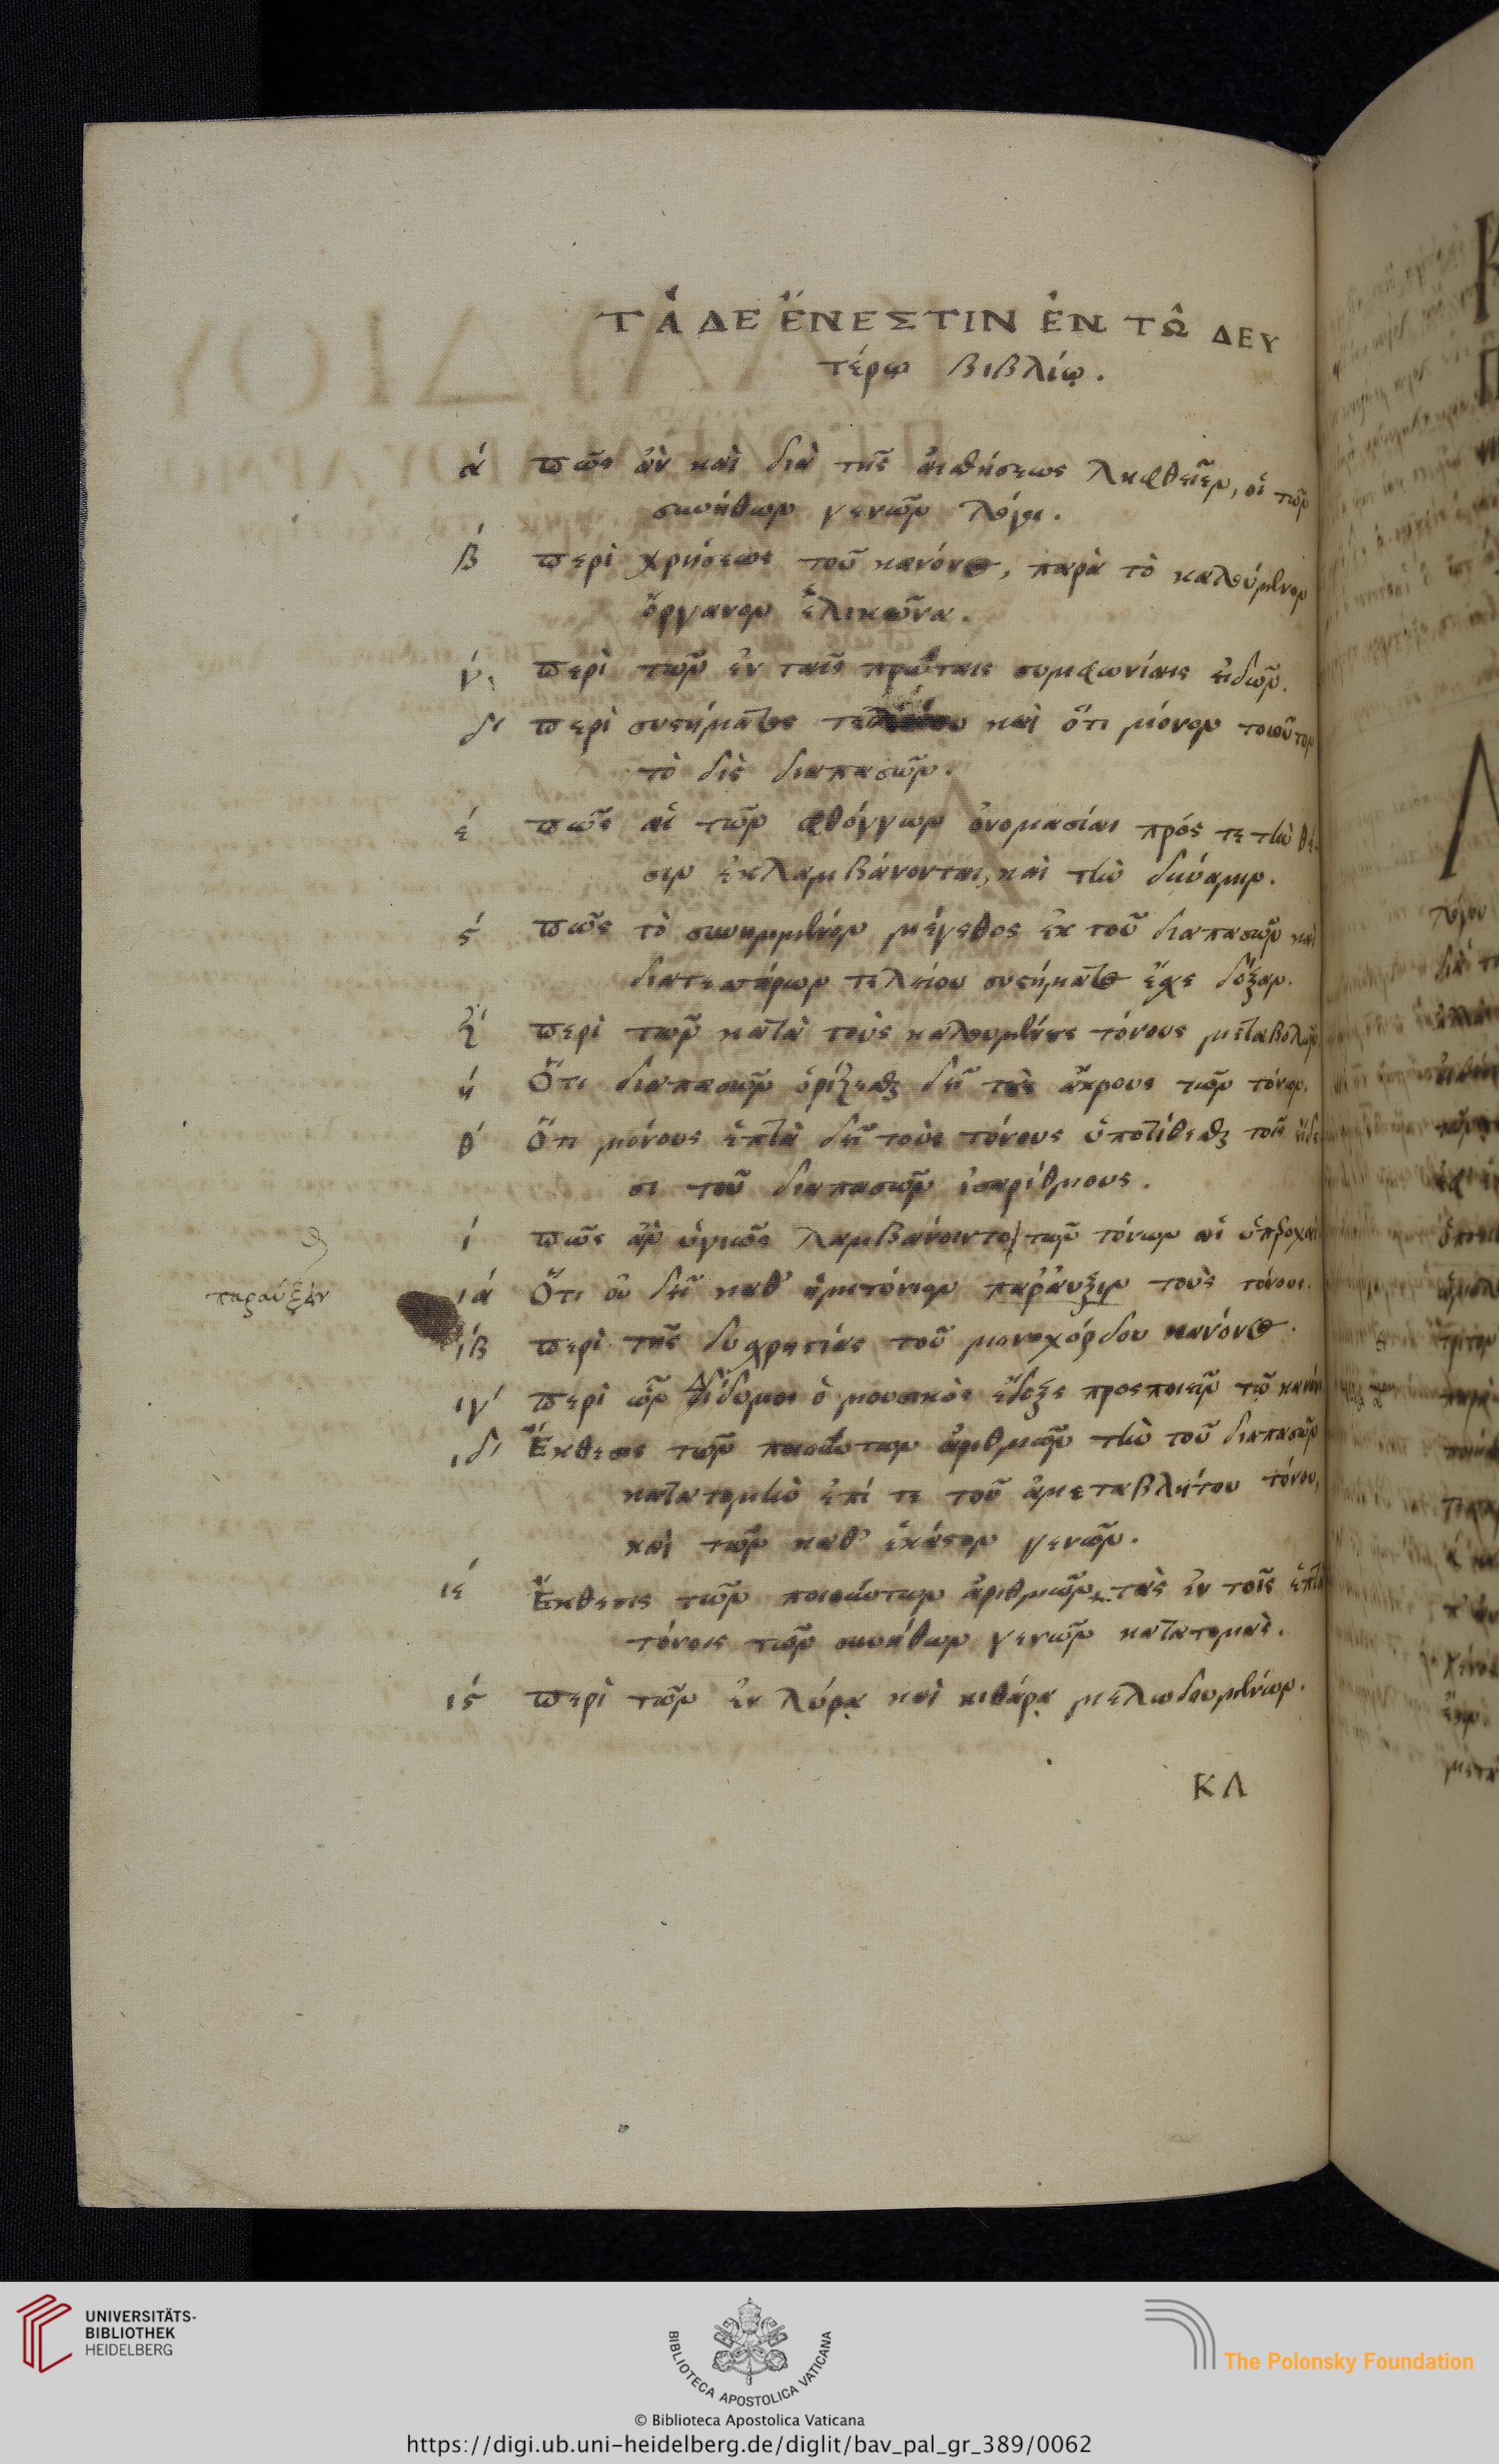 ΤΆ ΔΕ ἜΝΕΣΤΙΝ ἘΝ ΤΩ͂ ΔΕΥ
τέρω βιβλίῳ.
ά πῶς ἂν καὶ διὰ τῆς αἰσθήσεως ληφθεῖεν, οἱ τῶν
συνήθων γενῶν λόγοι.
β́ περὶ χρήσεως τοῦ κανόνος, παρὰ τὸ καλούμενον
ὄργανον ἑλικῶνα.
γ́. περὶ τῶν ἐν ταῖς πρώταις συμφωνίαις εἰδῶν.
δ' περὶ συστήματος τελείου καὶ ὅτι μόνον τοιοῦτον
τὸ δὶς διαπασῶν.
έ πῶς αἱ τῶν φθόγγων ὀνομασίαι πρός τε τὴν θέ-
σιν ἐκλαμβάνονται, καὶ τὴν δύναμιν.
ς́ πῶς τὸ συνημμένον μέγεθος ἐκ τοῦ διαπασῶν καὶ
διατεσσάρων τελείου συστήματος ἔσχε δόξαν.
ζ́ περὶ τῶν κατὰ τοὺς καλουμένους τόνους μεταβολῶν
ή Ὅτι διαπασῶν ὁρίζεσθαι δεῖ τοὺς ἄκρους τῶν τόνων.
θ́ Ὅτι μόνους ἑπτὰ δεῖ τοὺς τόνους ὑποτίθεσθαι τοῖς εἴδε
σι τοῦ διαπασῶν ἰσαρίθμους.
ί πῶς ἂν ὑγιῶς λαμβάνοιντο τῶν τόνων αἱ ὑπεροχαὶ
παραύξειν
ιά Ὅτι οὐ δεῖ καθ' ἡμιτόνιον παραύξειν τοὺς τόνους.
ιβ́ περὶ τῆς δυσχρηστίας τοῦ μονοχόρδου κανόνος.
ιγ' περὶ ὧν Δίδυμος ὁ μουσικὸς ἔδοξε προσποιεῖν τῷ κανόνι
ιδ' Ἔκθεσις τῶν ποιούντων ἀριθμῶν τὴν τοῦ διαπασῶν
κατατομὴν ἐπί τε τοῦ ἀμεταβλήτου τόνου,
καὶ τῶν καθ' ἕκαστον γενῶν.
ιέ Ἔκθεσις τῶν ποιούντων ἀριθμῶν τὰς ἐν τοῖς ἑπτὰ
τόνοις τῶν συνήθων γενῶν κατατομάς.
ις́ περὶ τῶν ἐν λύρᾳ καὶ κιθάρᾳ μελωδουμένων.
ΚΛ
UNIVERSITÄTS-
BIBLIOTHEK
HEIDELBERG
BIBLIOTECA APOSTOLICA VATICANA
The Polonsky Foundation
© Biblioteca Apostolica Vaticana
https://digi.ub.uni-heidelberg.de/diglit/bav_pal_gr_389/0062